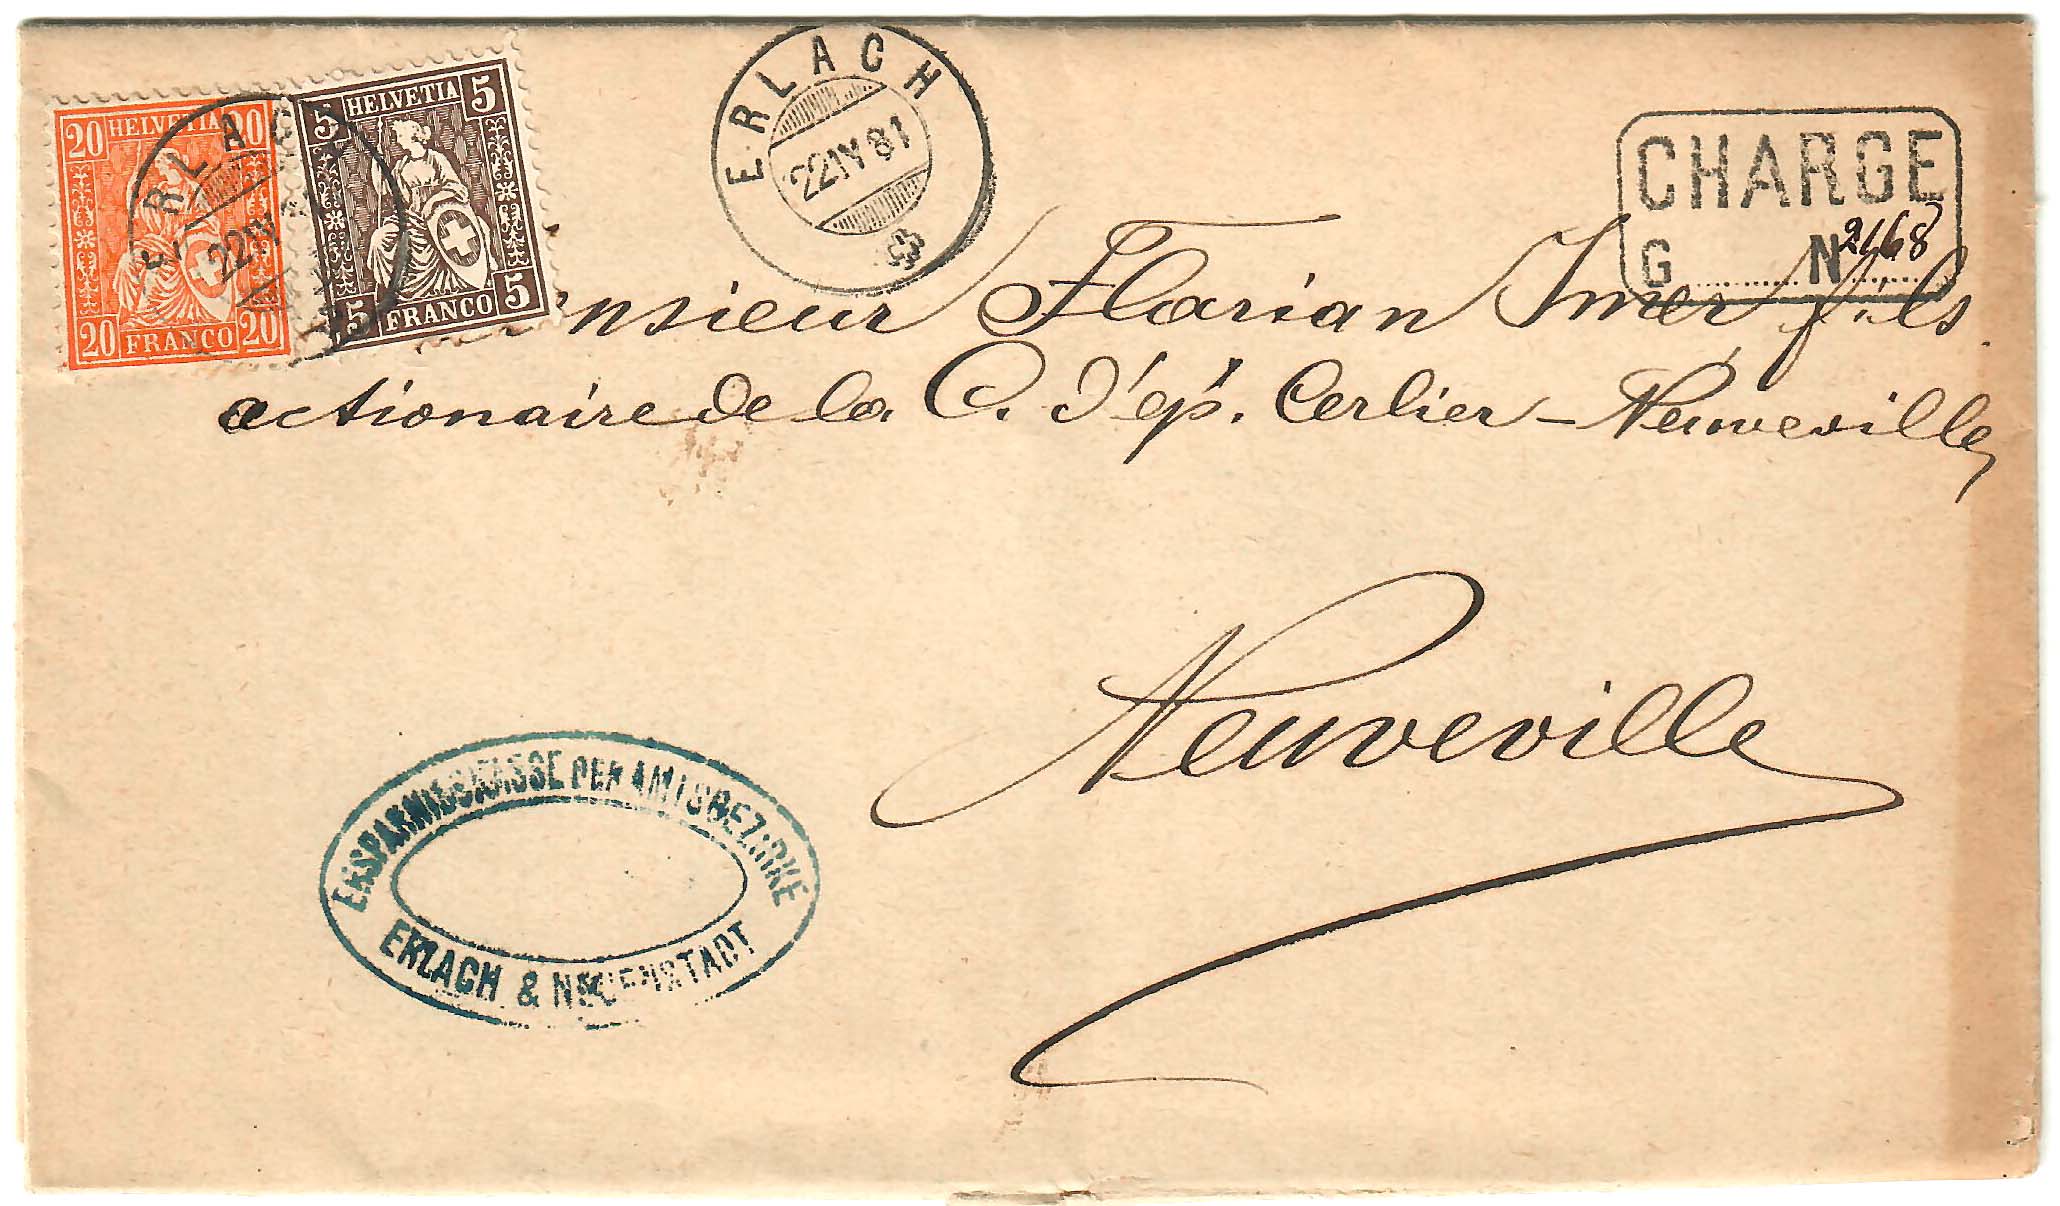 20 HELVETIA 20
20 FRANCO 20
5 HELVETIA 5
5 FRANCO 5
ERLACH
22 IV
ERLACH
22 IV 81
CHARGÉ
G ........ N 2168
nsieur Florian Imer fils
actionaire de la C. d'ép. Cerlier - Neuveville,
Neuveville
ERSPARNISSKASSE DER AMTSBEZIRKE
ERLACH & NEUENSTADT